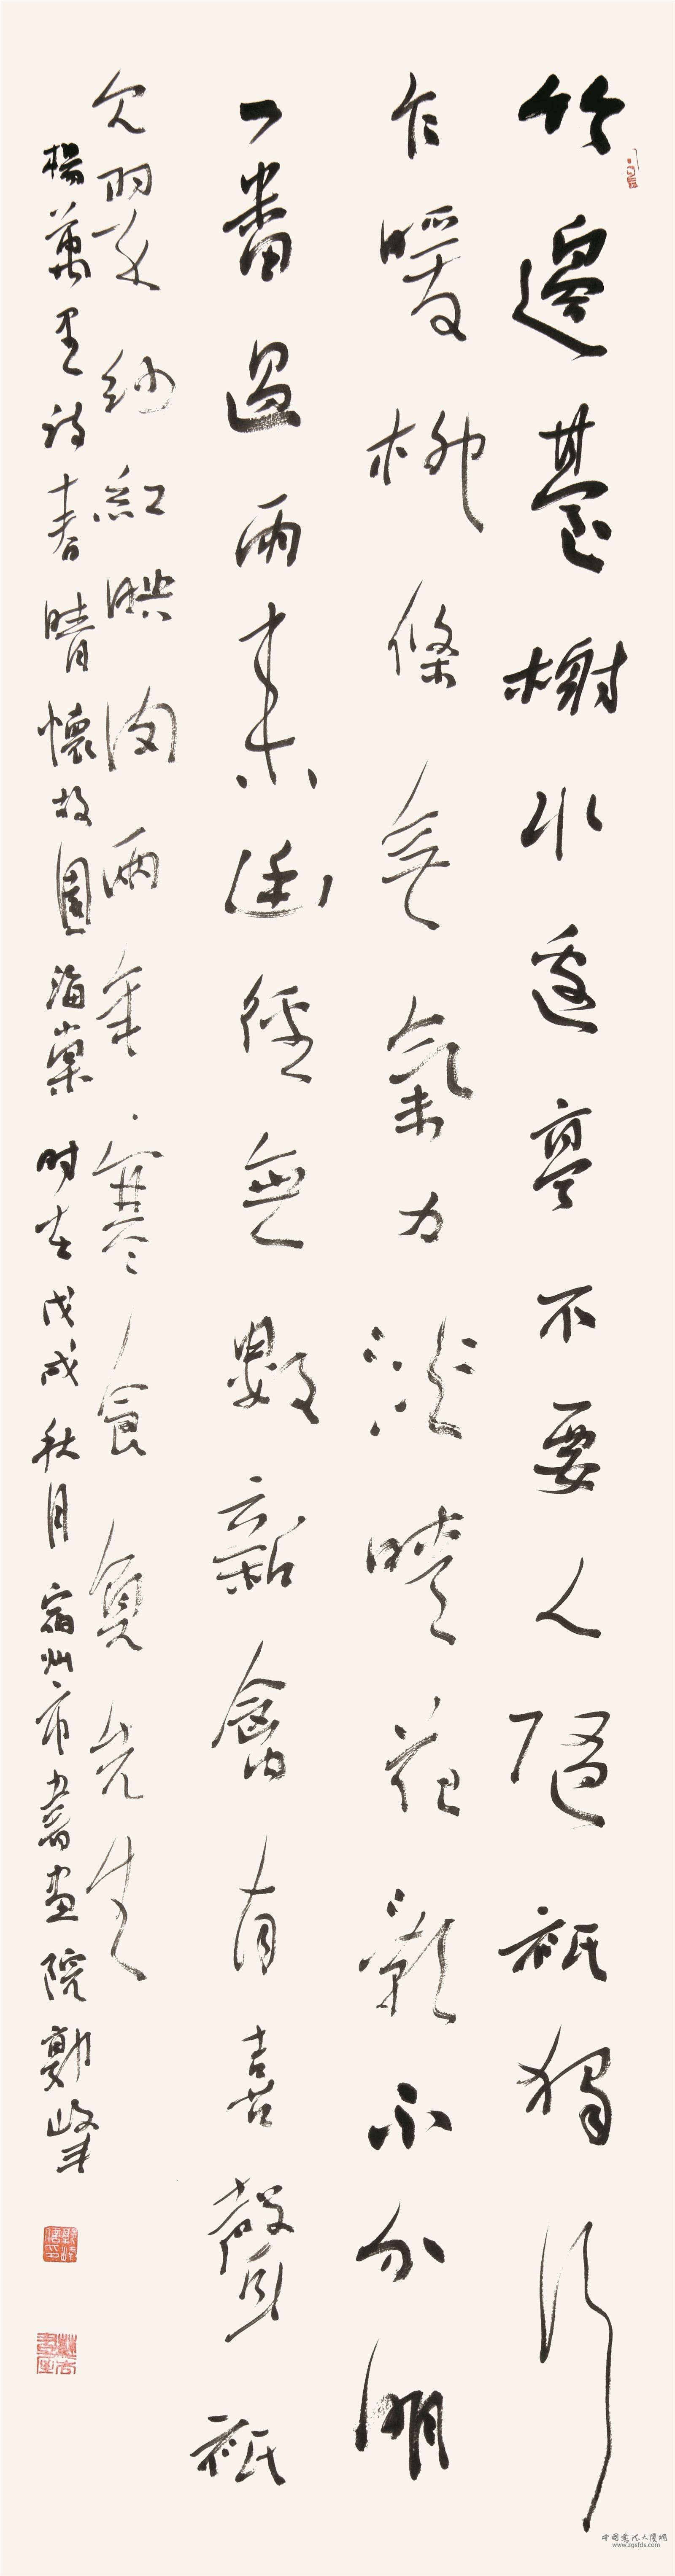 竹邊臺榭水邊亭不要人隨祇獨行
乍暖柳條無氣力淡晴花影不分明
一番過雨來幽徑無數新禽有喜聲祇
欠翠紗紅映肉兩年寒食負先生
楊萬里詩春晴懷故園海棠时在戊戌秋月宿州市書畫院郭峰
中國書法大厦網
www.zgsfds.com